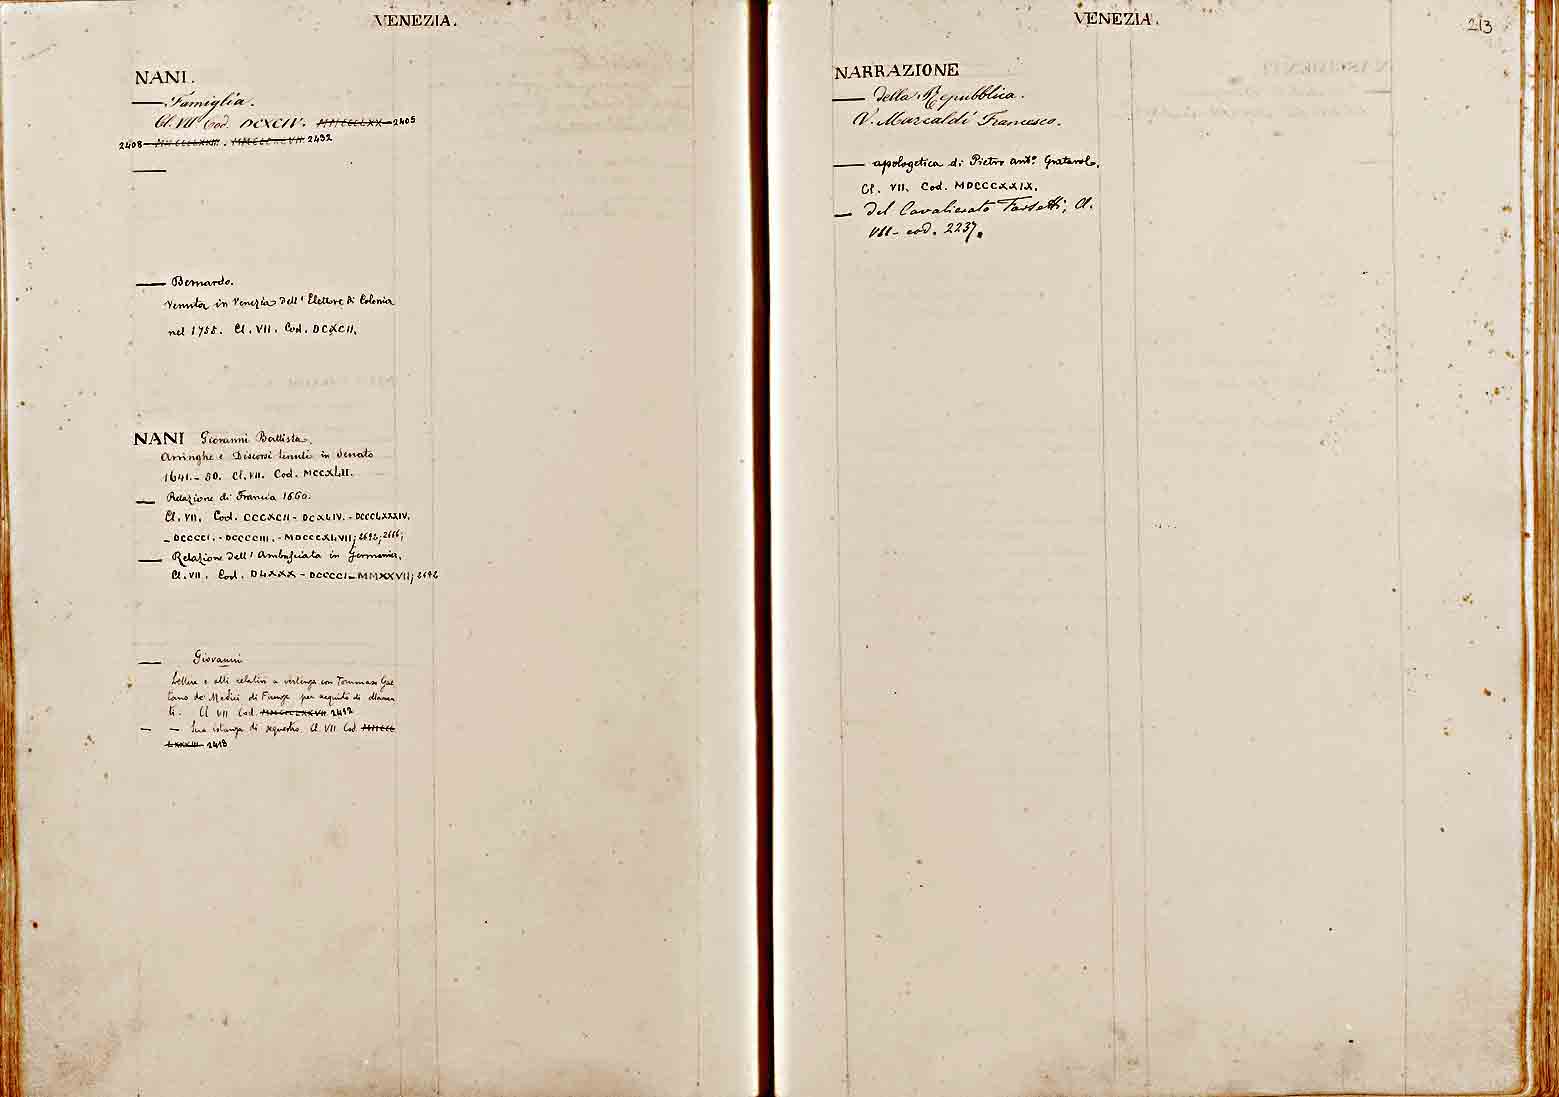 VENEZIA.
NANI.
— Famiglia.
Cl. VII Cod. DCXCIV. 2405
2408 2492
—
— Bernardo.
Venuta in Venezia dell' Elettore di Colonia
nel 1755. Cl. VII. Cod. DCXCII.
NANI Giovanni Battista.
Arringhe e Discorsi tenuti in Senato
1641.-50. Cl. VII. Cod. MCCXLII.
— Relazione di Francia 1660.
Cl. VII. Cod. CCCXCII - DCXLIV. - DCCCLXXXIV.
- DCCCCI. - DCCCCIII. - MDCCCXLVII; 2692; 2666;
— Relazione dell' Ambasciata in Germania.
Cl. VII. Cod. DLXXX - DCCCCI - MMXXVII; 2692
— Giovanni
Lettere e atti relativi a vertenza con Tommaso Gae
tano de' Medici di Firenze per acquisto di diaman
ti. Cl VII Cod. 2412
— — Sua istanza di sequestro. Cl. VII Cod
2413
VENEZIA.
213
NARRAZIONE
— della Repubblica.
V. Marcaldi Francesco.
— apologetica di Pietro Ant.º Gratarol.
Cl. VII. Cod. MDCCCXXIX.
— del Cavalierato Farsetti; Cl.
VII - cod. 2237.